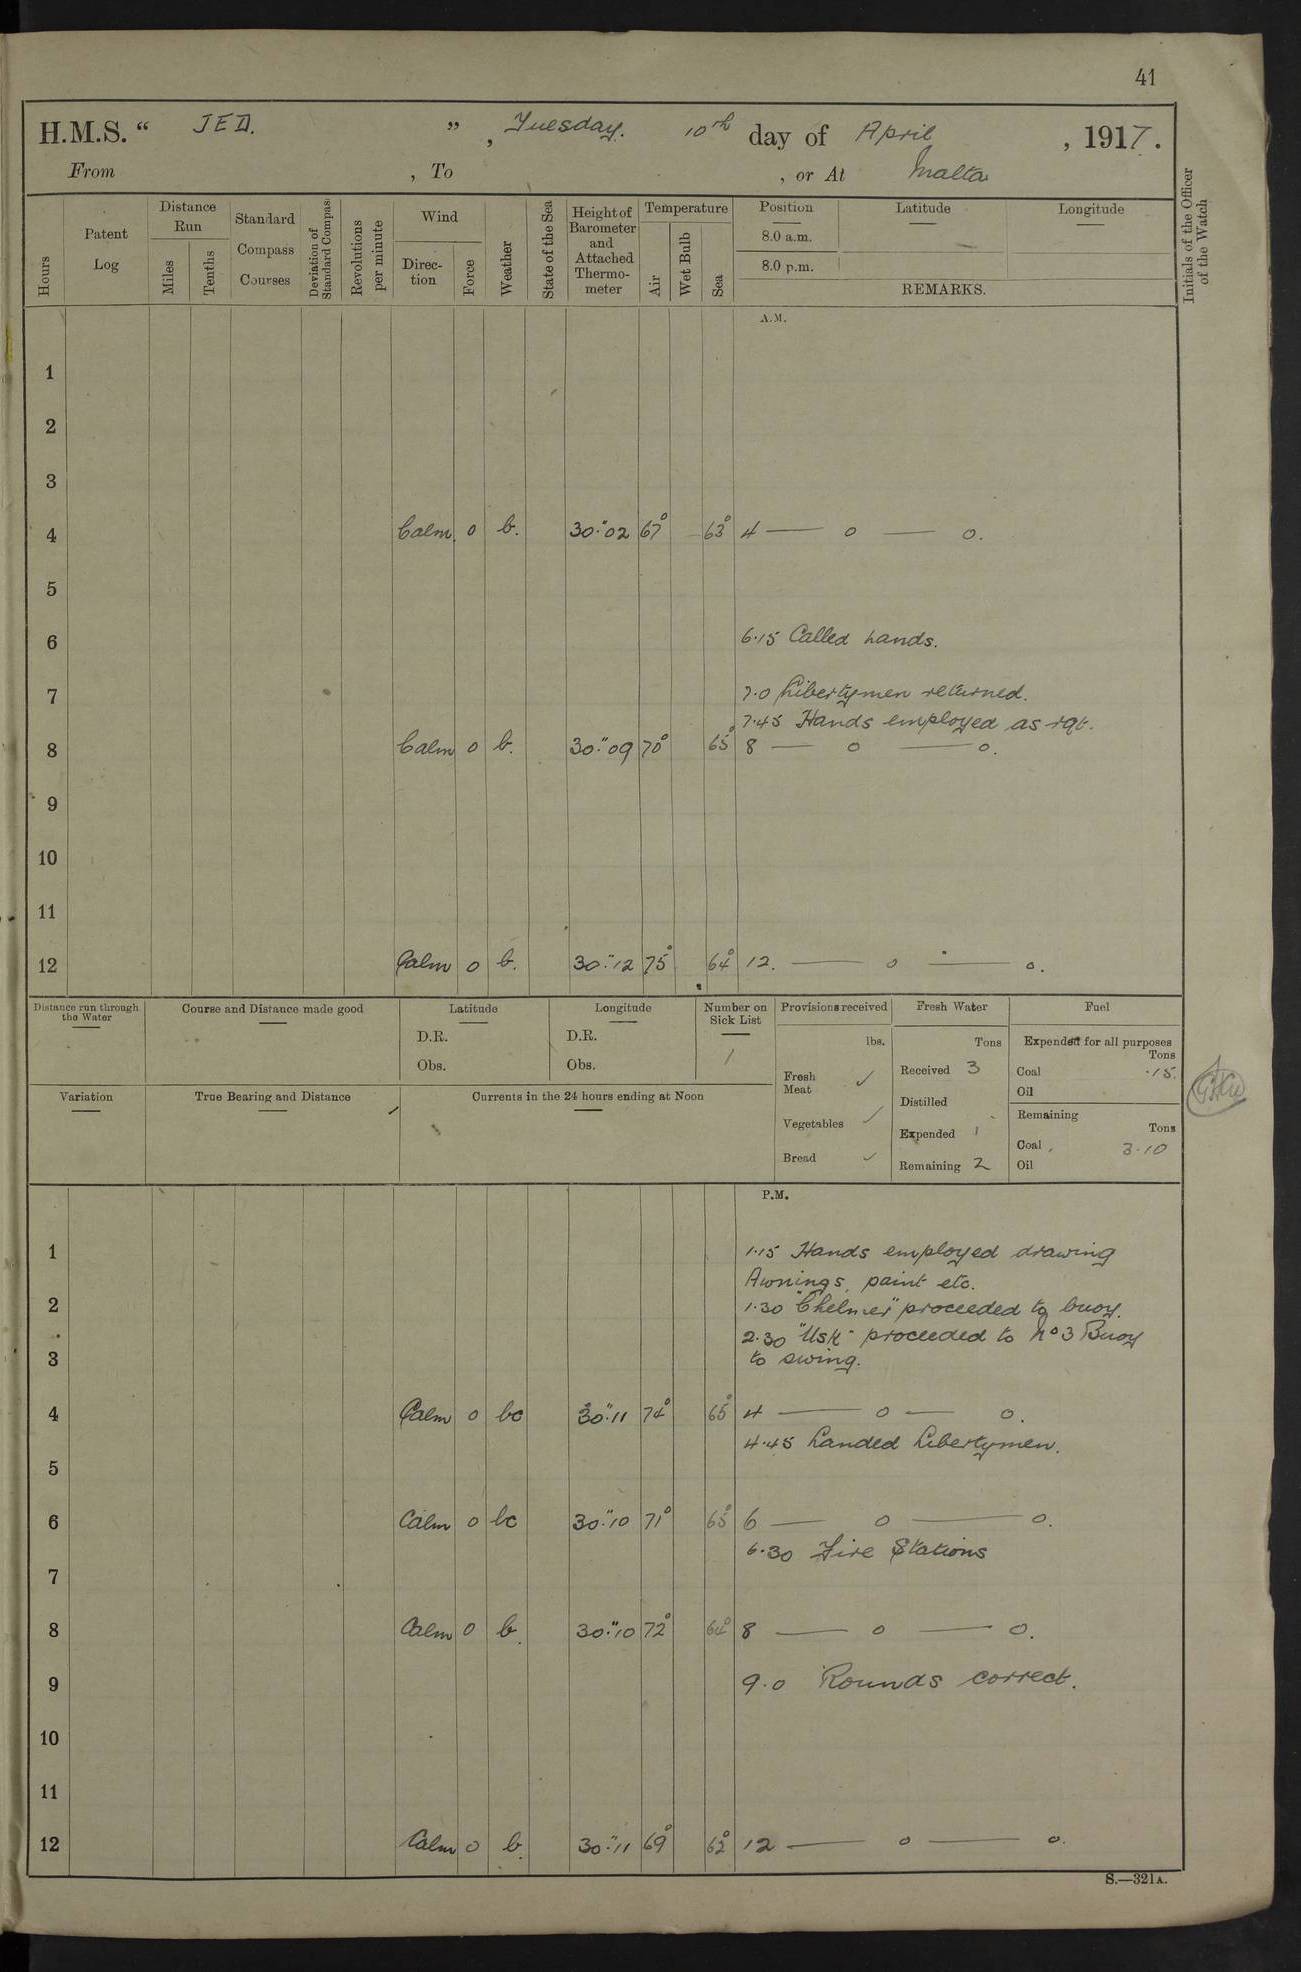 41
H.M.S. “ JED. ” , Tuesday. 10th day of April , 1917.
From , To , or At Malta
Hours
Patent Log
Distance Run
Miles
Tenths
Standard Compass Courses
Deviation of Standard Compass
Revolutions per minute
Wind
Direc-tion
Force
Weather
State of the Sea
Height of Barometer and Attached Thermo-meter
Temperature
Air
Wet Bulb
Sea
Position
8.0 a.m.
8.0 p.m.
Latitude
Longitude
REMARKS.
Initials of the Officer of the Watch
A.M.
1
2
3
4 Calm 0 b. 30·"02 67° 63° 4 — o — o.
5
6 6·15 Called hands.
7 7·0 Libertymen returned.
7·45 Hands employed as rqt.
8 Calm 0 b. 30·"09 70° 65° 8 — o — o.
9
10
11
12 Calm 0 b. 30·"12 75° 64° 12. — o — o.
Distance run through the Water
Course and Distance made good
Latitude
D.R.
Obs.
Longitude
D.R.
Obs.
Number on Sick List
1
Provisions received
lbs.
Fresh Meat ✓
Vegetables ✓
Bread ✓
Fresh Water
Tons
Received 3
Distilled
Expended 1
Remaining 2
Fuel
Expended for all purposes
Tons
Coal ·15.
Oil
Remaining
Tons
Coal 3·10
Oil
Variation
True Bearing and Distance
Currents in the 24 hours ending at Noon
P.M.
1 1·15 Hands employed drawing
Awnings, paint etc.
2 1·30 "Chelmer" proceeded to buoy.
2·30 "Usk" proceeded to No 3 Buoy
3 to swing.
4 Calm 0 bc 30·"11 74° 65° 4 — o — o.
4·45 Landed Libertymen.
5
6 Calm 0 bc 30·"10 71° 65° 6 — o — o.
6·30 Fire Stations
7
8 Calm 0 b. 30·"10 72° 64° 8 — o — o.
9 9·0 Rounds correct.
10
11
12 Calm 0 b. 30·"11 69° 62° 12 — o — o.
S.—321A.